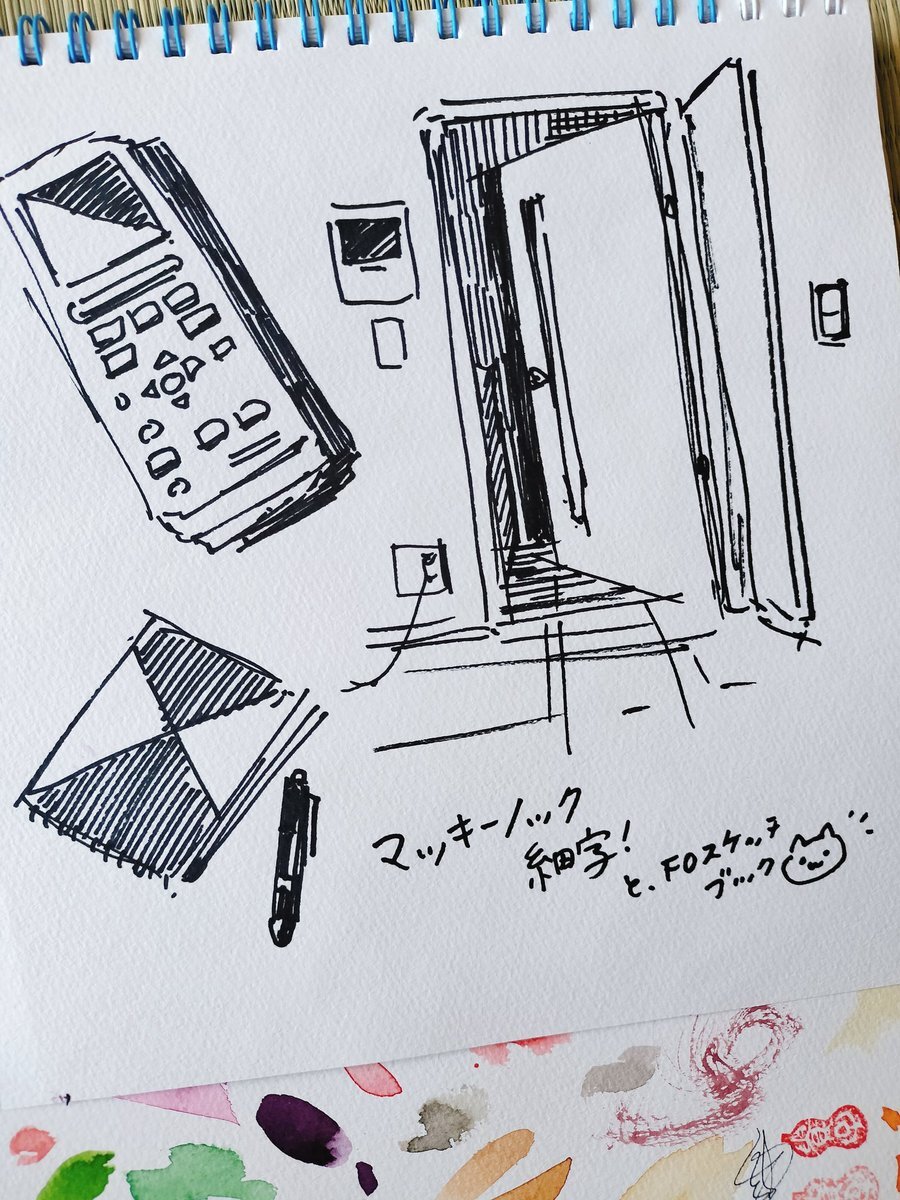 マッキーノック
細字!
と、F0スケッチ
ブック